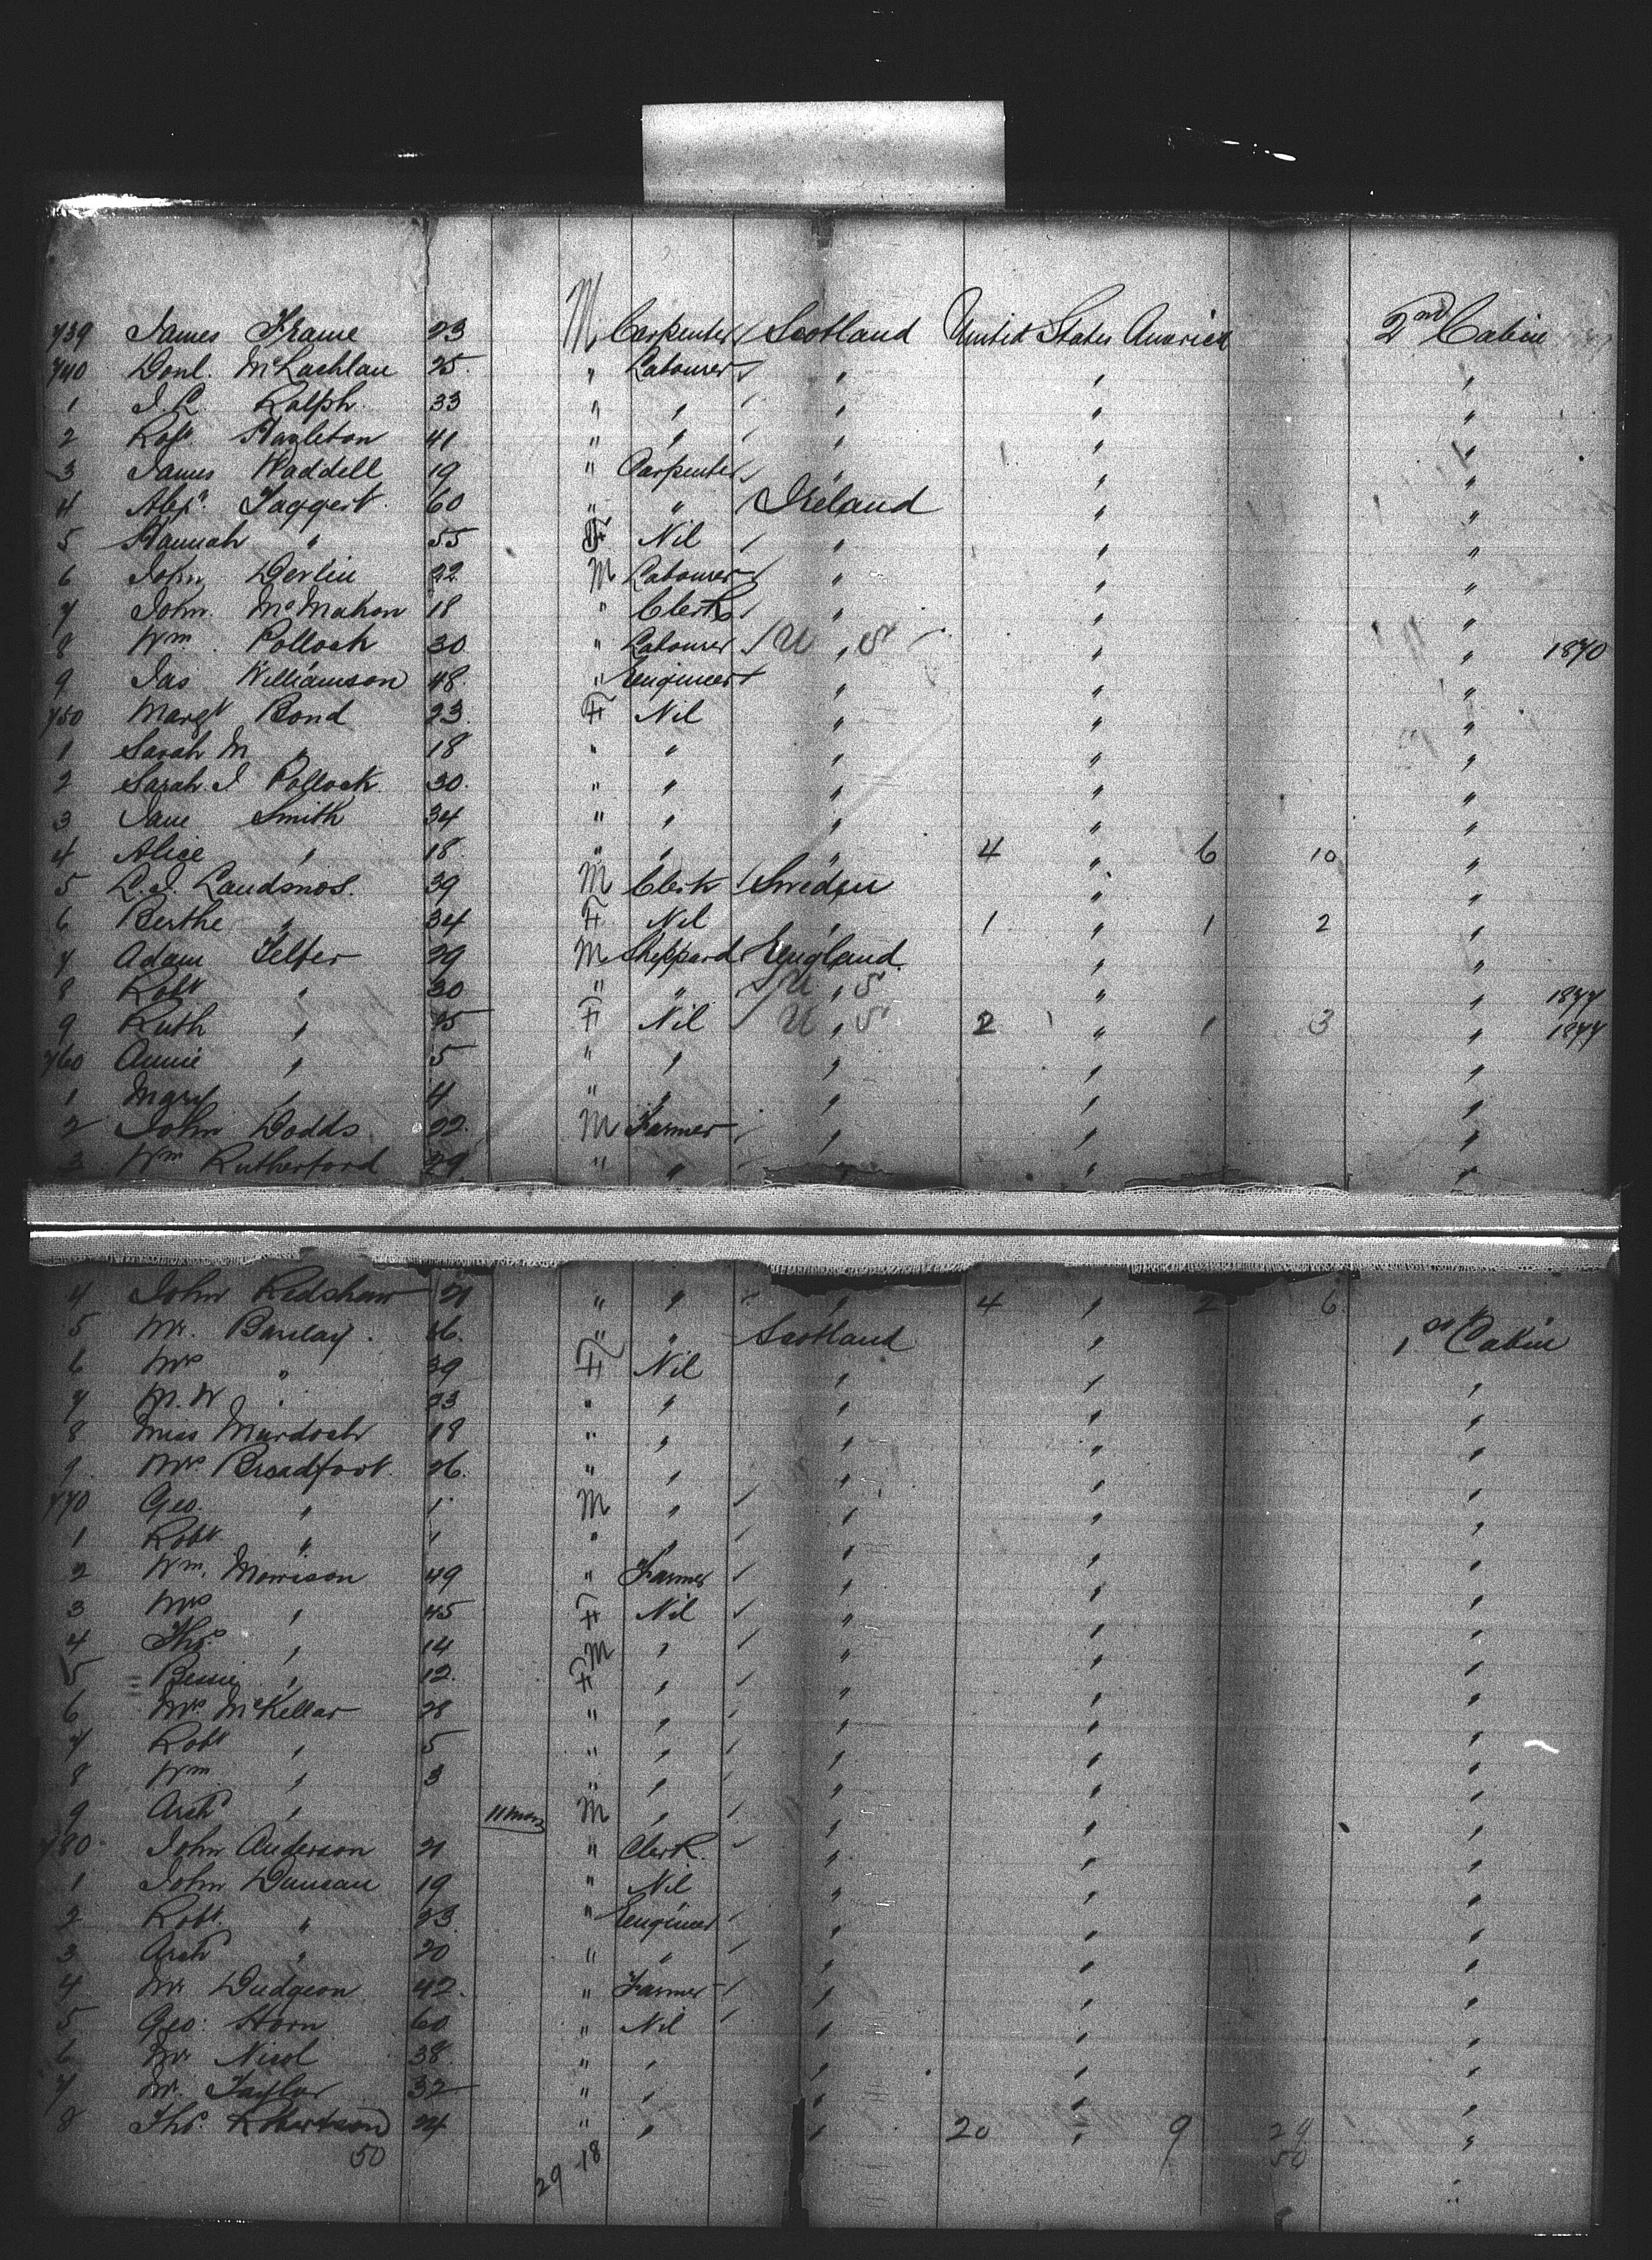 739 James Frame 23 M Carpenter Scotland United States America 2nd Cabin
740 Donl. McLachlan 25 " Labourer " " "
1 J. L. Ralph 33 " " " " "
2 Robt Hazleton 41 " " " " "
3 James Waddell 19 " Carpenter " " "
4 Alexr Taggert 60 " " Ireland " "
5 Hannah " 55 F Nil " " "
6 John Devlin 22 M Labourer " " "
7 John McMahon 18 " Clerk " " "
8 Wm Pollock 30 " Labourer U " S " " 1870
9 Jas Williamson 48 " Engineer " " "
750 Margt Bond 23 F Nil " " "
1 Sarah M " 18 " " " " "
2 Sarah J Pollock 30 " " " " "
3 Jane Smith 34 " " " " "
4 Alice " 18 " " " 4 " 6 10 "
5 L. J. 39 M Clerk Sweden " "
6 Berthe " 34 F Nil " 1 " 1 2 "
7 Adam Telfer 29 M Sheppard England " "
8 Robt " 30 " " U " S " " 1877
9 Ruth " 25 F Nil U " S 2 " 1 3 " 1877
760 Annie " 5 " " " " "
1 Mary " 4 " " " " "
2 John Dodds 22 M Farmer " " "
3 Wm Rutherford 29 " " " " "
4 John Redshaw 21 " " " 4 " 2 6
5 Mr. Barclay 36 " " Scotland " 1st Cabin
6 Mrs " 39 F Nil " " "
7 M. W " 23 " " " " "
8 Miss Murdoch 18 " " " " "
9 Mrs Broadfoot 26 " " " " "
770 Geo. " 1 M " " " "
1 Robt " 1 " " " " "
2 Wm. Morrison 49 " Farmer " " "
3 Mrs " 45 F Nil " " "
4 Ths. " 14 M " " " "
5 Bessie " 12 F " " " "
6 Mrs McKellar 28 " " " " "
7 Robt " 5 " " " " "
8 Wm " 3 " " " " "
9 Arch " 11 mos M " " " "
780 John Anderson 21 " Clerk " " "
1 John Duncan 19 " Nil " " "
2 Robt. " 23 " Engineer " " "
3 Arch " 20 " " " " "
4 Mr Dudgeon 42 " Farmer " " "
5 Geo: Horn 60 " Nil " " "
6 Mr Nicol 38 " " " " "
7 Mr. Taylor 32 " " " " "
8 Ths. Robertson 24 " " " 20 " 9 29 "
50 29 18 50